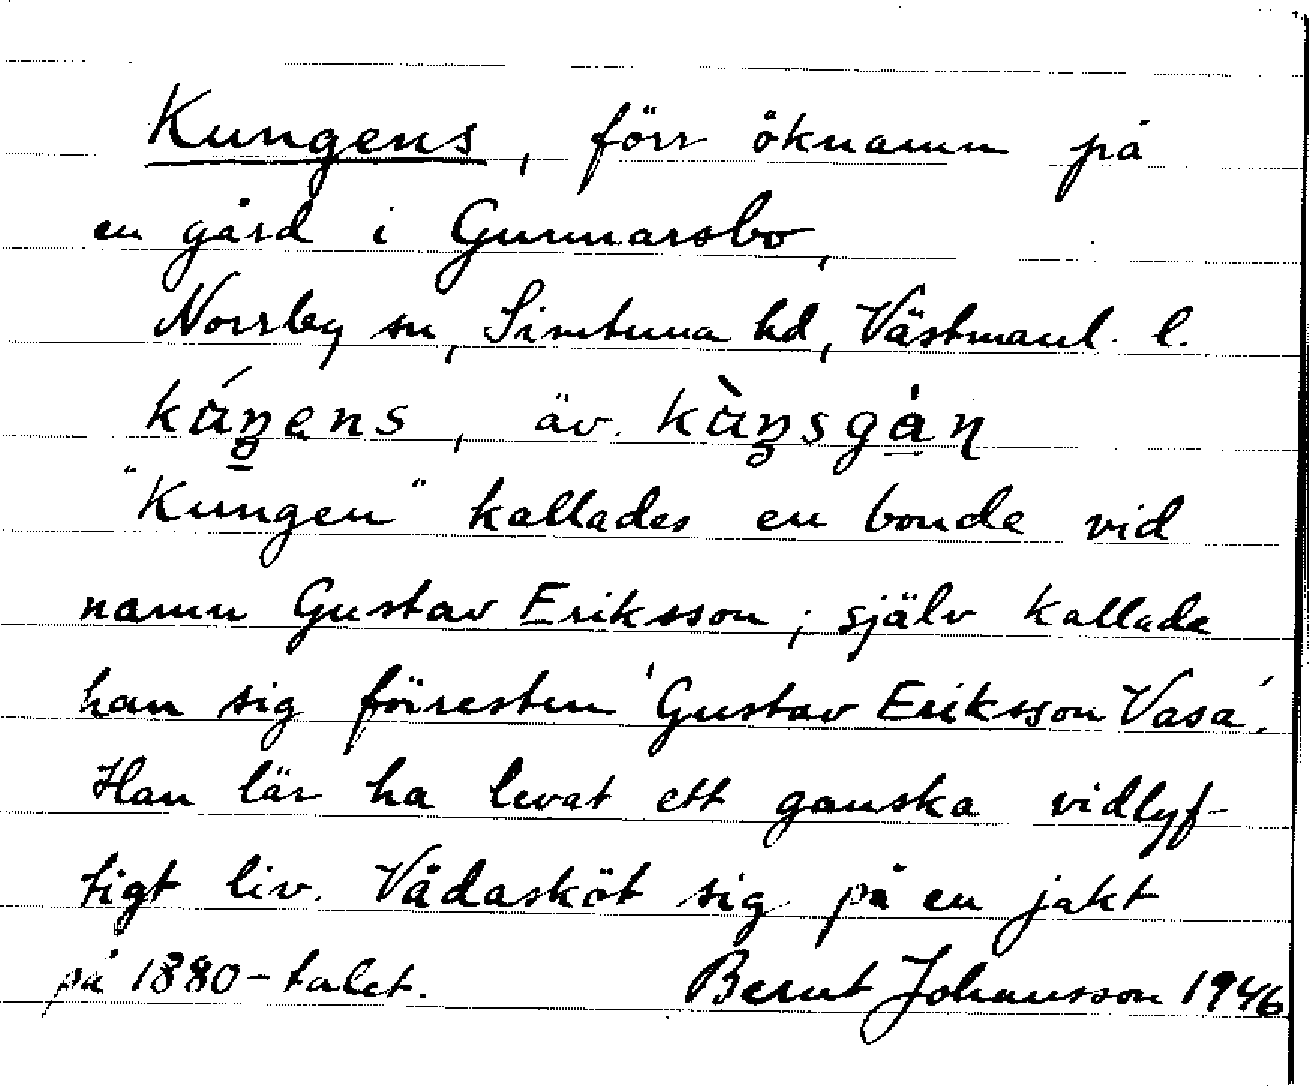 Kungens, förr öknamn på
en gård i Gunnarsbo,
Norrby sn, Simtuna hd, Västmanl. l.
kúŋens, äv. kùŋsgån
"Kungen" kallades en bonde vid
namn Gustav Eriksson; själv kallade
han sig förresten 'Gustav Eriksson Vasa'.
Han lär ha levat ett ganska vidlyf-
tigt liv. Vådasköt sig på en jakt
på 1880-talet. Bernt Johansson 1946